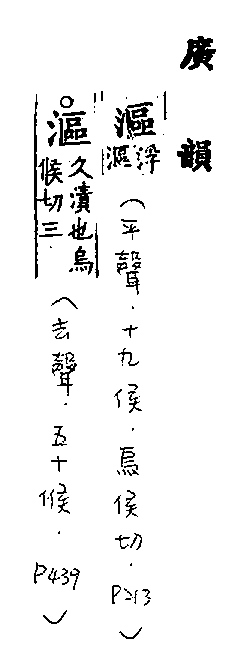 廣韻
漚浮漚(平聲．十九侯．烏侯切．P213)
漚久漬也烏候切三(去聲．五十候．P439)